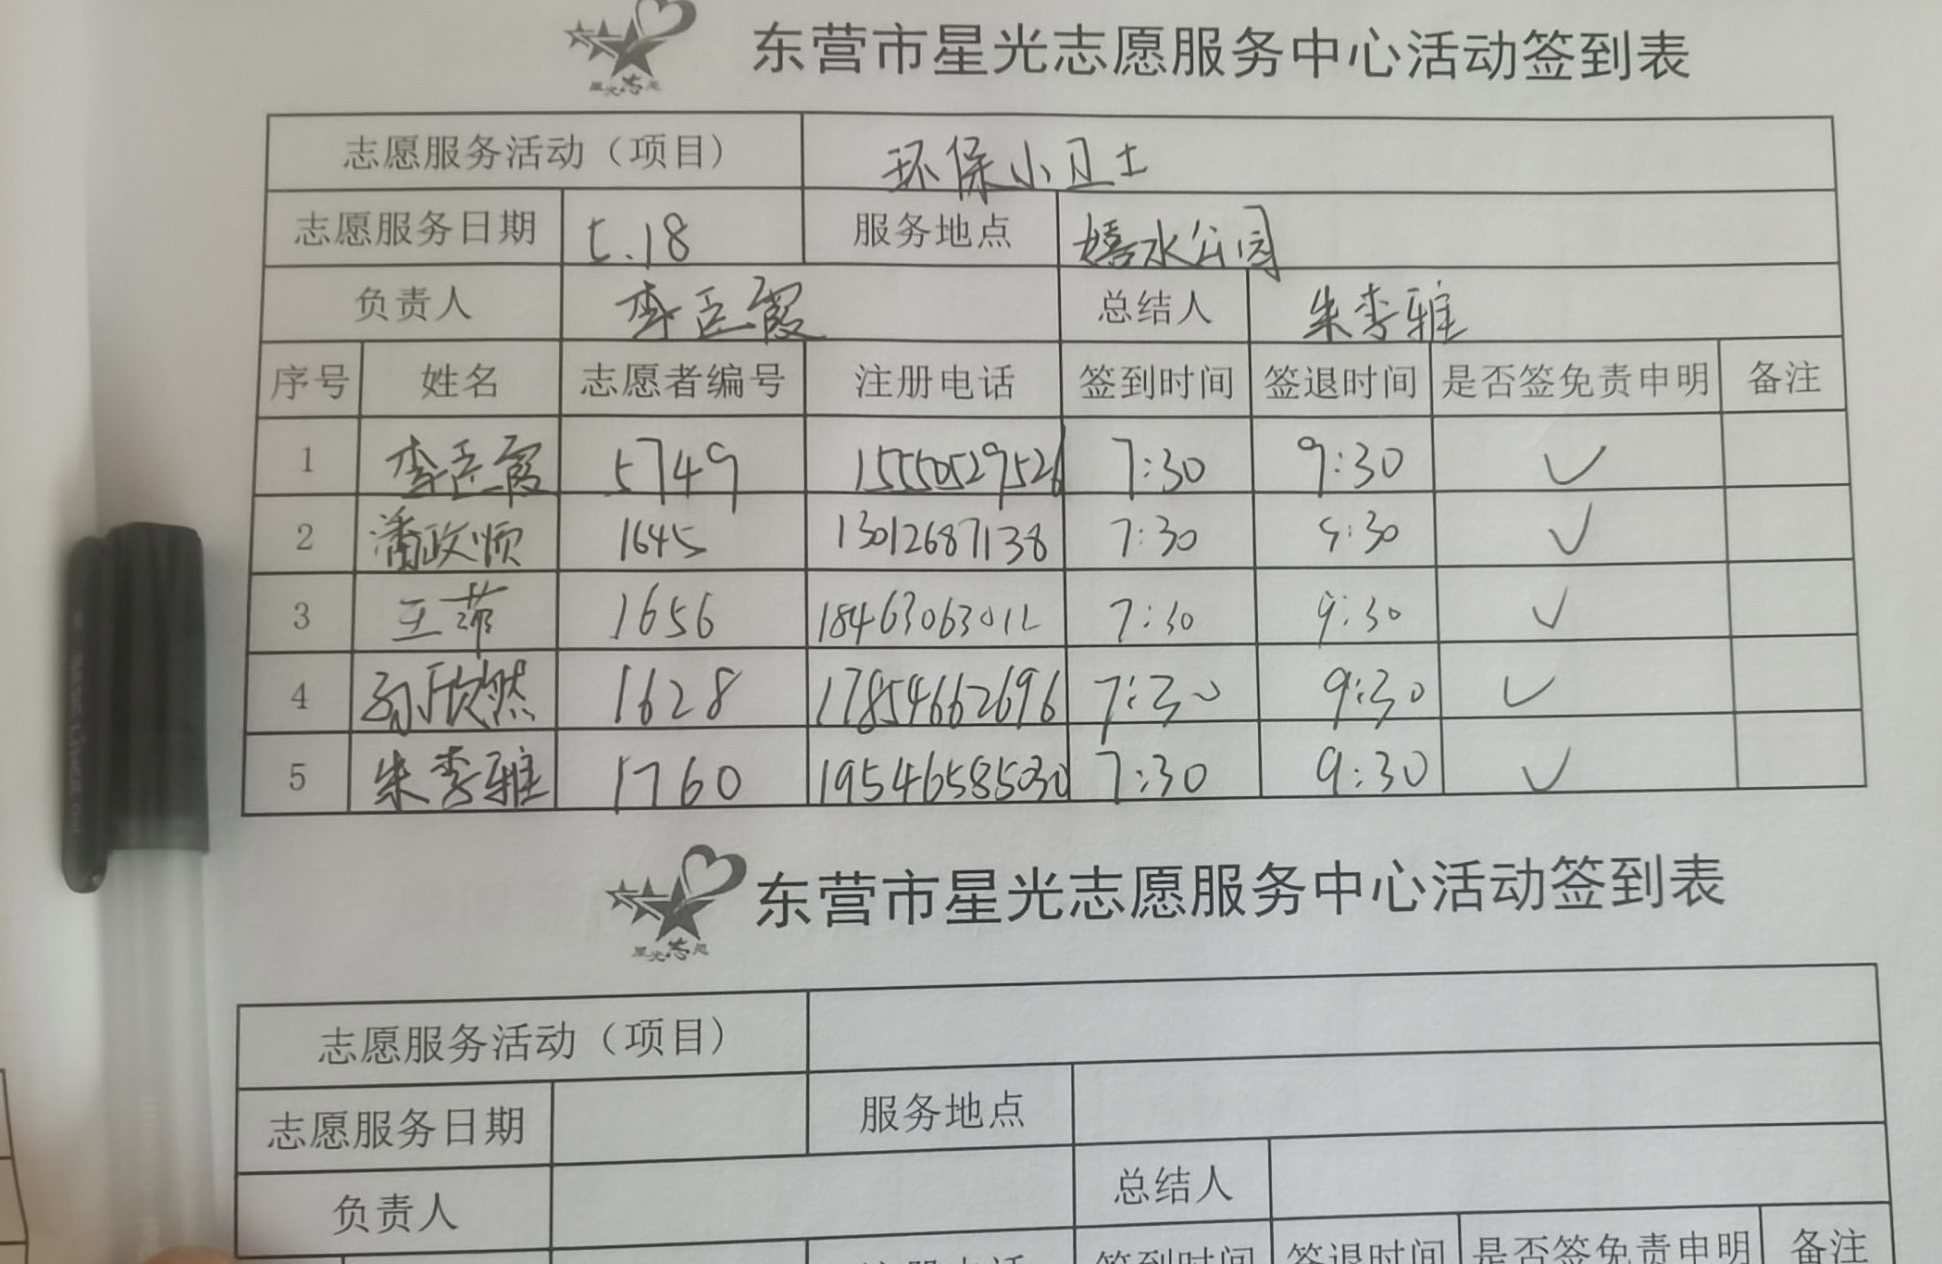 东营市星光志愿服务中心活动签到表
星光志愿
志愿服务活动（项目） 环保小卫士
志愿服务日期 5.18 服务地点 嬉水公园
负责人 李臣霞 总结人 朱李雅
序号 姓名 志愿者编号 注册电话 签到时间 签退时间 是否签免责申明 备注
1 李臣霞 5749 15550529526 7:30 9:30 ✓
2 潘政烦 1645 13012687138 7:30 9:30 ✓
3 王菲 1656 18463063012 7:30 9:30 ✓
4 孙欣然 1628 17854662696 7:30 9:30 ✓
5 朱李雅 1760 19546585030 7:30 9:30 ✓
东营市星光志愿服务中心活动签到表
星光志愿
志愿服务活动（项目）
志愿服务日期 服务地点
负责人 总结人
注册电话 签到时间 签退时间 是否签免责申明 备注